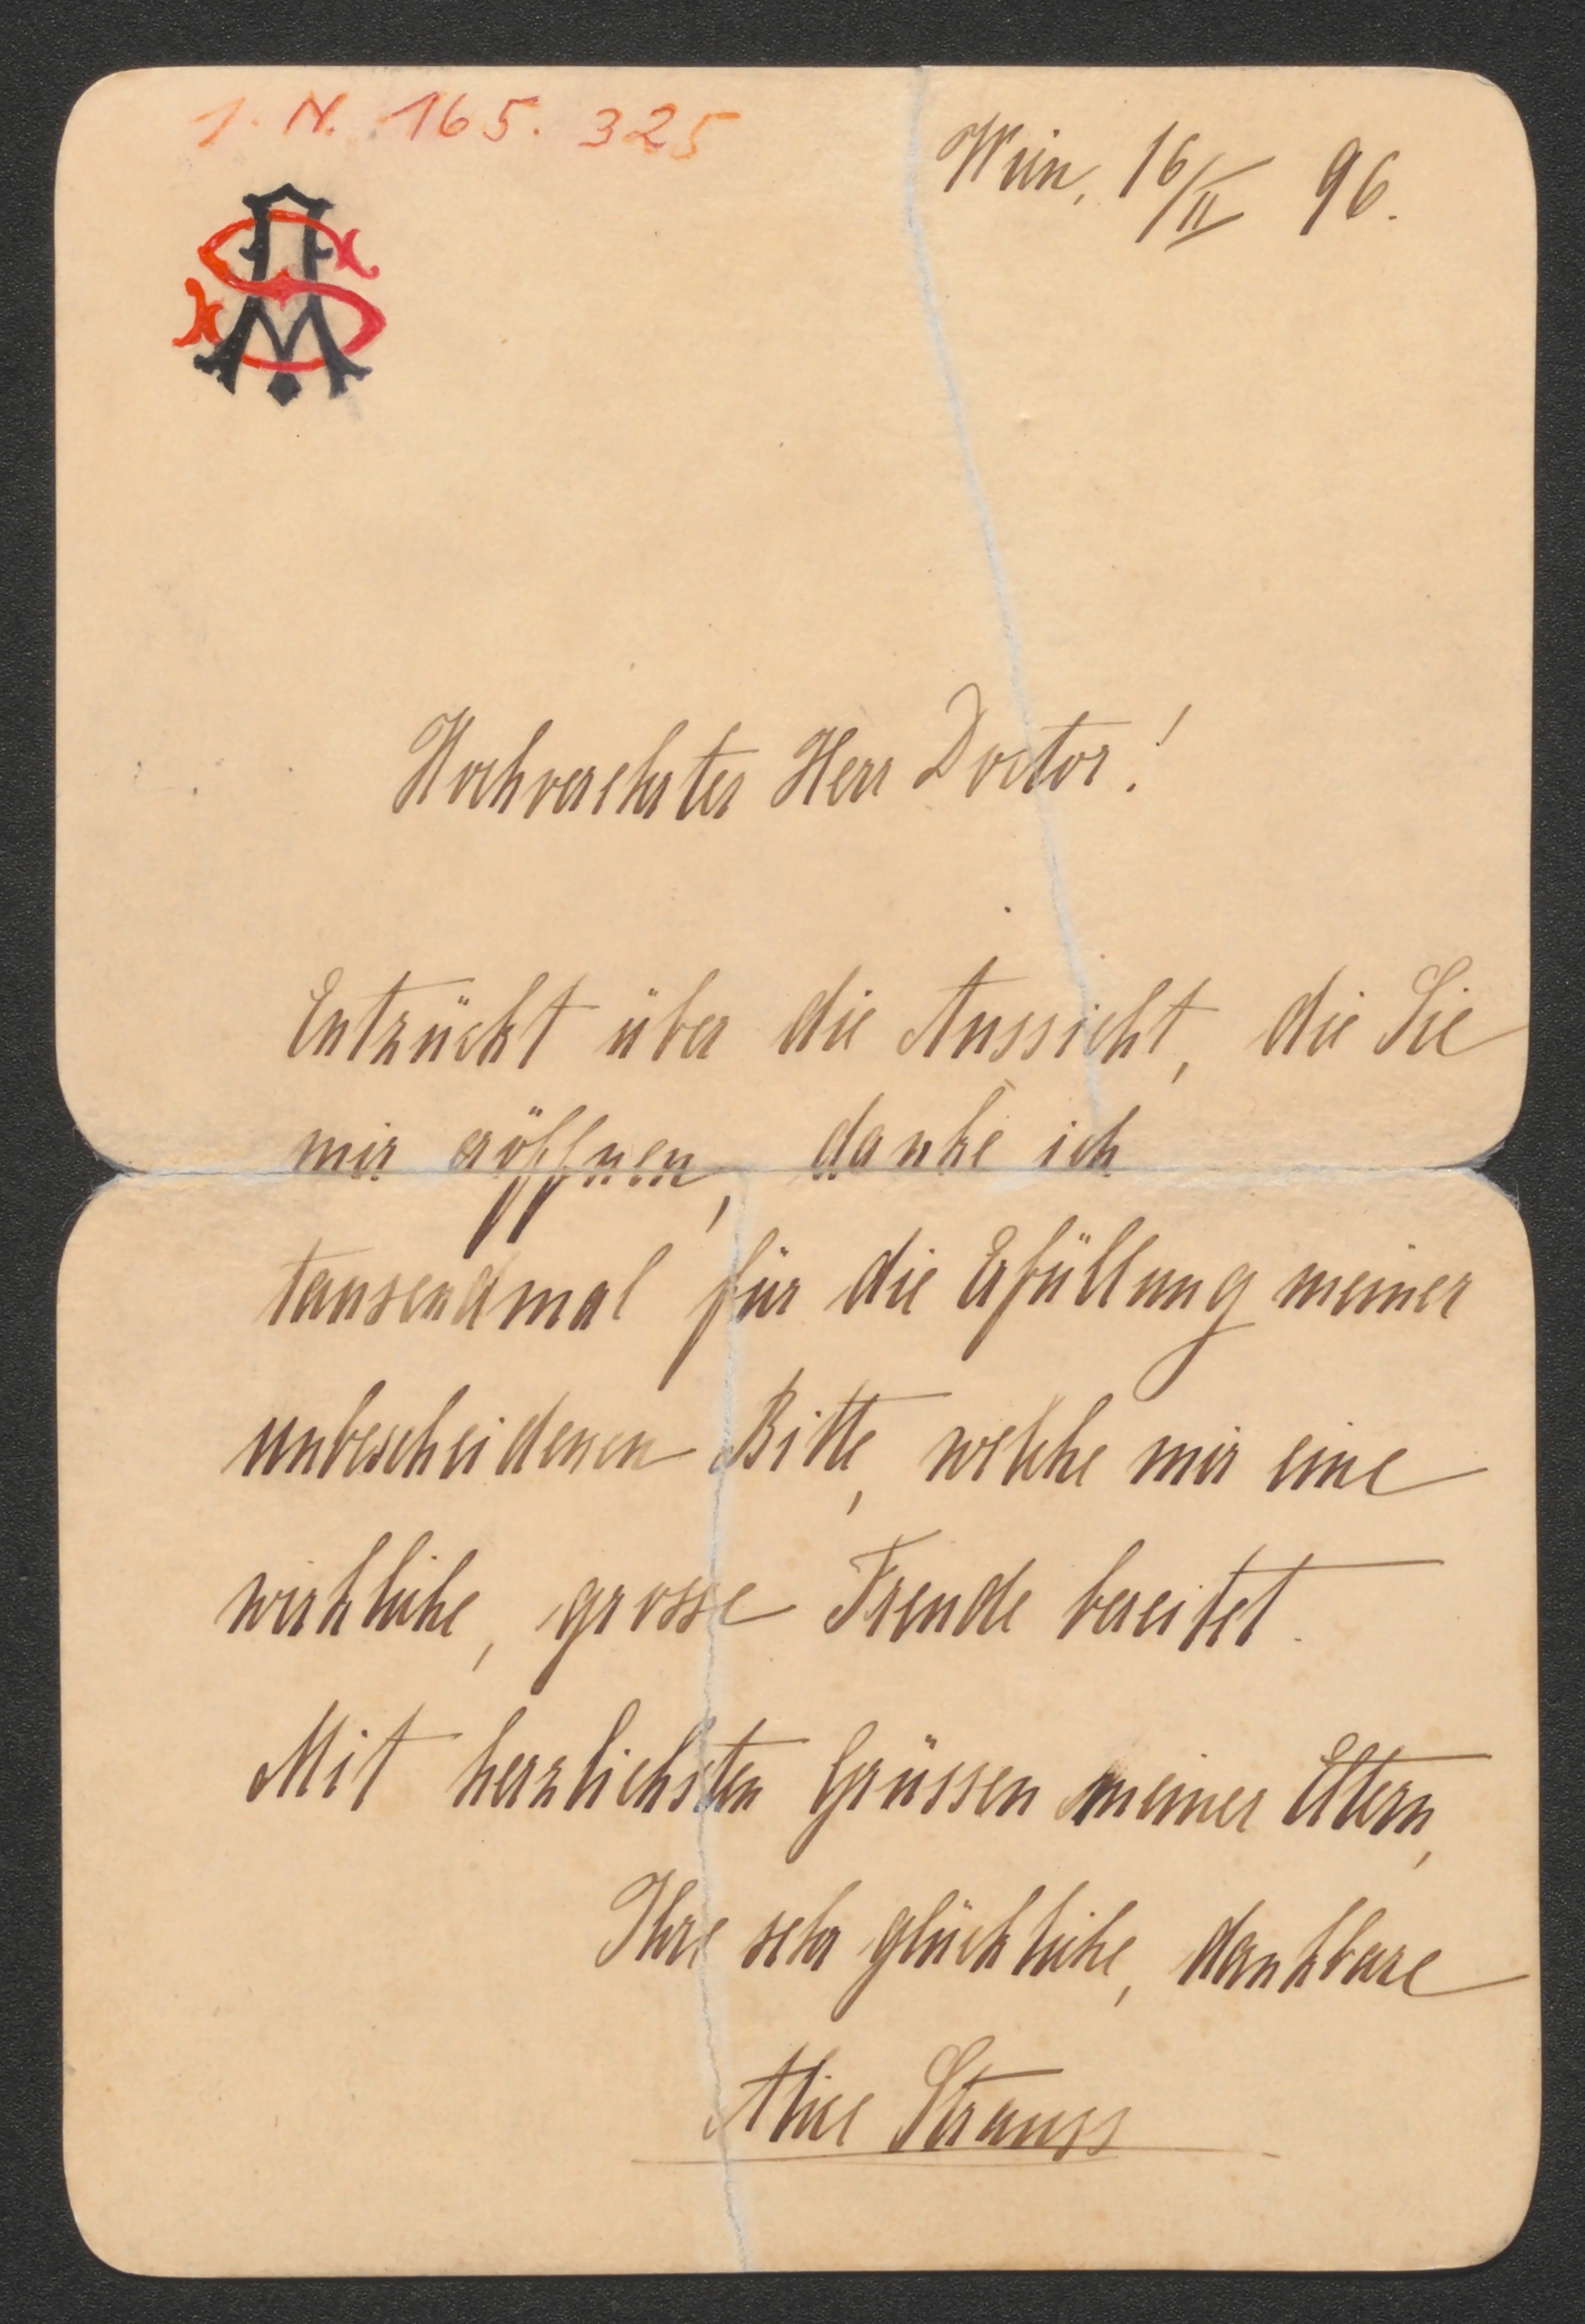 I. N. 165. 325
Wien, 16/II 96.
AS
Hochverehrter Herr Doctor!
Entzückt über die Aussicht, die Sie
mir eröffnen, danke ich
tausendmal für die Erfüllung meiner
unbescheidenen Bitte, welche mir eine
wirkliche, grosse Freude bereitet.
Mit herzlichsten Grüssen meiner Eltern,
Ihre sehr glückliche, dankbare
Alice Strauss